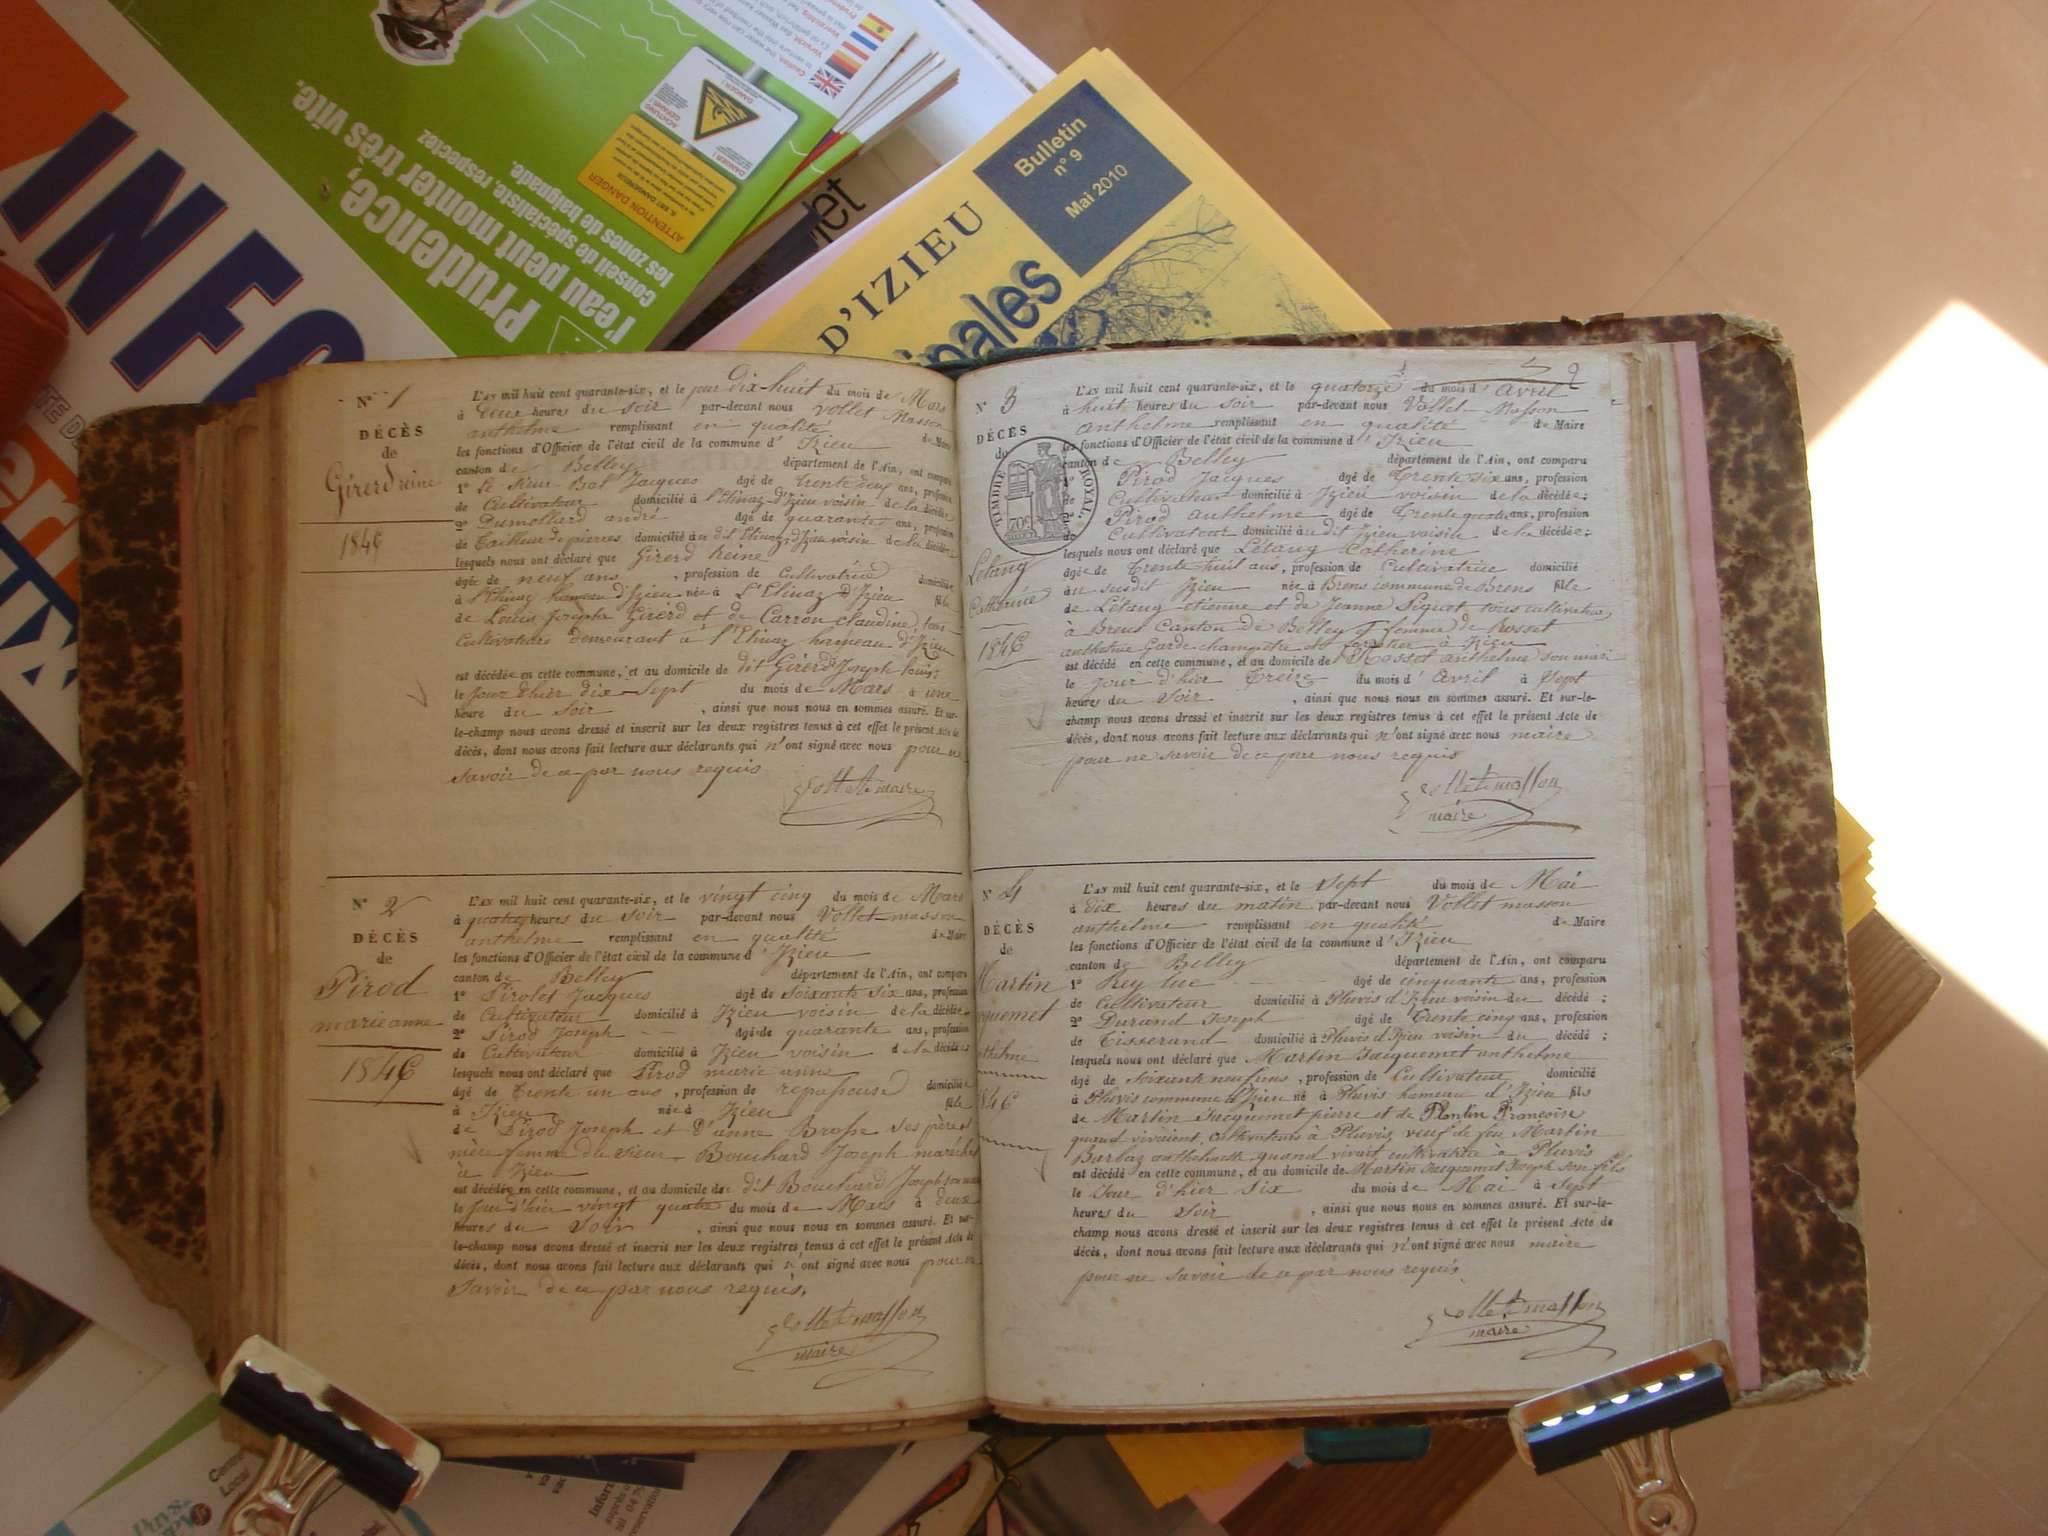 INFO
Prudence,
l'eau peut monter très vite.
conseil de spécialiste, respectez
les zones de baignade.
ATTENTION DANGER
Bulletin
n° 9
Mai 2010
D'IZIEU
N° 1
DÉCÈS
de
Girerd reine
1846
L'AN mil huit cent quarante-six, et le jour dix-huit du mois de Mars
à deux heures du soir par-devant nous Vollet Masson
anthelme remplissant en qualité de Maire
les fonctions d'Officier de l'état civil de la commune d'Izieu
canton de Belley département de l'Ain, ont comparu
1° Le Sieur Bal Jacques agé de trente deux ans, profession
de Cultivateur domicilié à l'Elinaz d'Izieu voisin de la décédée
2° Dumollard andré agé de quarante ans, profession
de Tailleur de pierres domicilié au dit Elinaz d'Izieu voisin de la décédée
lesquels nous ont déclaré que Girerd Reine
agée de neuf ans, profession de Cultivatrice domiciliée
à l'Elinaz hameau d'Izieu née à L'Elinaz d'Izieu fille
de Louis Joseph Girerd et de Carron Claudine, tous
Cultivateurs demeurant à l'Elinaz hameau d'Izieu
est décédée en cette commune, et au domicile de dit Girerd Joseph louis;
le Jour d'hier dix-Sept du mois de Mars à une
heure du Soir, ainsi que nous nous en sommes assuré. Et sur-
le-champ nous avons dressé et inscrit sur les deux registres tenus à cet effet le présent Acte de
décès, dont nous avons fait lecture aux déclarants qui n'ont signé avec nous pour ne
Savoir de ce par nous requis
Vollet maire
N° 2
DÉCÈS
de
Pirod
marie anne
1846
L'AN mil huit cent quarante-six, et le vingt cinq du mois de Mars
à quatre heures du Soir par-devant nous Vollet masson
anthelme remplissant en qualité de Maire
les fonctions d'Officier de l'état civil de la commune d'Izieu
canton de Belley département de l'Ain, ont comparu
1° Pirolet Jacques agé de Soixante Six ans, profession
de Cultivateur domicilié à Izieu voisin de la décédée
2° Pirod Joseph agé de quarante ans, profession
de Cultivateur domicilié à Izieu voisin de la décédée
lesquels nous ont déclaré que Pirod marie anne
agé de Trente un ans, profession de repasseuse domiciliée
à Izieu née à Izieu fille
de Pirod Joseph et d'anne Brosse ses père et
mère femme de Sieur Bouchard Joseph maréchal
à Izieu
est décédée en cette commune, et au domicile de dit Bouchard Joseph son mari
le Jour d'hier vingt quatre du mois de Mars à deux
heures du Soir, ainsi que nous nous en sommes assuré. Et sur-
le-champ nous avons dressé et inscrit sur les deux registres tenus à cet effet le présent Acte de
décès, dont nous avons fait lecture aux déclarants qui n'ont signé avec nous pour ne
Savoir de ce par nous requis.
Vollet masson
maire
2
N° 3
DÉCÈS
de
TIMBRE ROYAL
70c
Létang
Catherine
1846
L'AN mil huit cent quarante-six, et le quatorze du mois d'Avril
à huit heures du Soir par-devant nous Vollet-Masson
anthelme remplissant en qualité de Maire
les fonctions d'Officier de l'état civil de la commune d'Izieu
canton de Belley département de l'Ain, ont comparu
1° Pirod Jacques agé de Trente six ans, profession
de Cultivateur domicilié à Izieu voisin de la décédée;
2° Pirod anthelme agé de Trente quatre ans, profession
de Cultivateur domicilié au dit Izieu voisin de la décédée;
lesquels nous ont déclaré que Létang Catherine
agée de Trente huit ans, profession de Cultivatrice domicilié
au susdit Izieu née à Brens commune de Brens fille
de Létang etienne et de Jeanne Piquet tous cultivateurs
à Brens Canton de Belley et femme de Rosset
anthelme Garde champetre et forestier à Izieu
est décédé en cette commune, et au domicile de Rosset anthelme son mari
le Jour d'hier Treize du mois d'Avril à Sept
heures du Soir, ainsi que nous nous en sommes assuré. Et sur-le-
champ nous avons dressé et inscrit sur les deux registres tenus à cet effet le présent Acte de
décès, dont nous avons fait lecture aux déclarants qui n'ont signé avec nous maire
pour ne savoir de ce par nous requis
Vollet masson
maire
N° 4
DÉCÈS
de
Martin
1846
L'AN mil huit cent quarante-six, et le Sept du mois de Mai
à dix heures du matin par-devant nous Vollet masson
anthelme remplissant en qualité de Maire
les fonctions d'Officier de l'état civil de la commune d'Izieu
canton de Belley département de l'Ain, ont comparu
1° Rey luc agé de cinquante ans, profession
de Cultivateur domicilié à Pluvis d'Izieu voisin du décédé;
2° Durand Joseph agé de Trente cinq ans, profession
de Tisserand domicilié à Pluvis d'Izieu voisin du décédé;
lesquels nous ont déclaré que Martin Jacquemet anthelme
agé de Soixante neuf ans, profession de Cultivateur domicilié
à Pluvis commune d'Izieu né à Pluvis hameau d'Izieu fils
de Martin Jacquemet pierre et de Plantin Françoise
quand vivaient cultivateurs à Pluvis, veuf de feu Martin
Barbaz quand vivait cultivatrice à Pluvis
est décédé en cette commune, et au domicile de Martin Jacquemet Joseph son fils
le Jour d'hier Six du mois de Mai à Sept
heures du Soir, ainsi que nous nous en sommes assuré. Et sur-le-
champ nous avons dressé et inscrit sur les deux registres tenus à cet effet le présent Acte de
décès, dont nous avons fait lecture aux déclarants qui n'ont signé avec nous maire
pour ne savoir de ce par nous requis
Vollet masson
maire